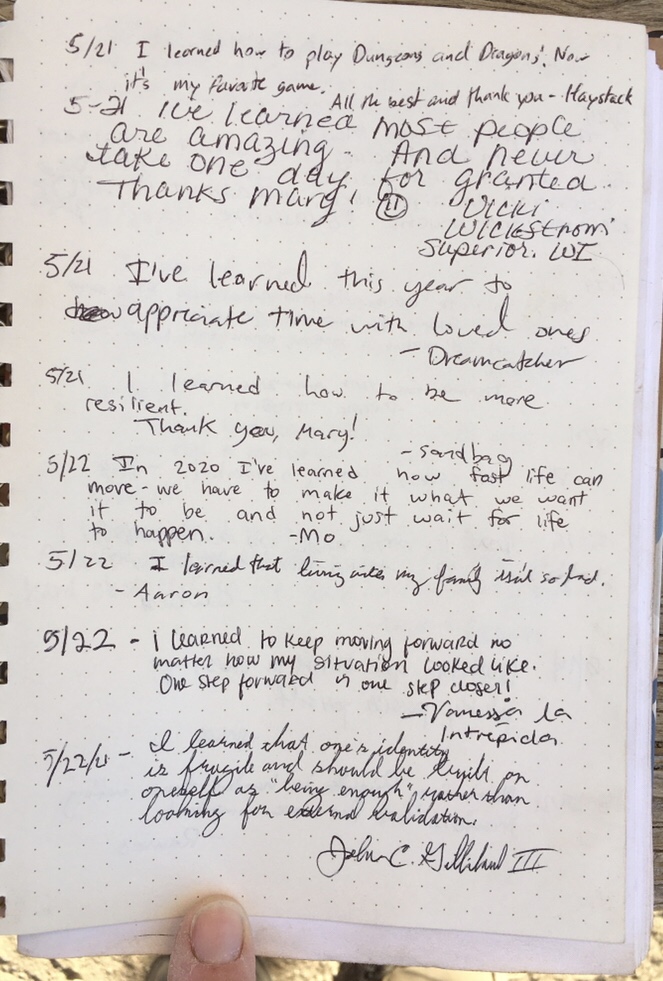 5/21 I learned how to play Dungeons and Dragons! Now
it's my favorite game.
All the best and thank you - Haystack
5-21 I've learned most people
are amazing. And never
take one day for granted.
Thanks Mary!
Vicki
Wickstrom
Superior. WI
5/21 I've learned this year to
appriciate time with loved ones
- Dreamcatcher
5/21 I learned how to be more
resilient.
Thank you, Mary!
- Sandbag
5/22 In 2020 I've learned how fast life can
move - we have to make it what we want
it to be and not just wait for life
to happen. -Mo
5/22 I learned that living with my family isn't so bad.
- Aaron
5/22 - I learned to keep moving forward no
matter how my situation looked like.
One step forward is one step closer!
- Vanessa la
Intrepida
5/22/21 - I learned that one's identity
is fragile and should be built on
oneself as "being enough" rather than
looking for external validation.
John C. Gilliland III